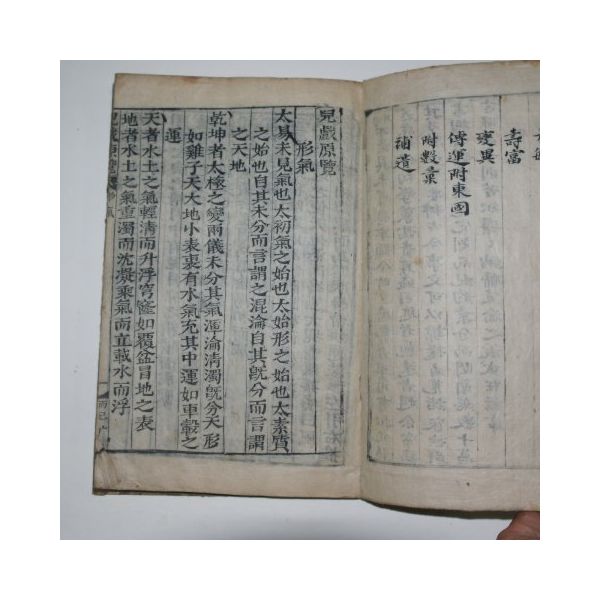 壽富
變異
傳運附東國
附數彙
補遺
兒戲原覽
形氣
太易未見氣也太初氣之始也太始形之始也太素質
之始也自其未分而言謂之混淪自其旣分而言謂
之天地
乾坤者太極之變兩儀未分其氣渾淪淸濁旣分天形
如雞子天大地小表裏有水氣充其中運如車轂之
運
天者水土之氣輕淸而升浮穹窿如覆盆冒地之表
地者水土之氣重濁而沈凝乘氣而立載水而浮